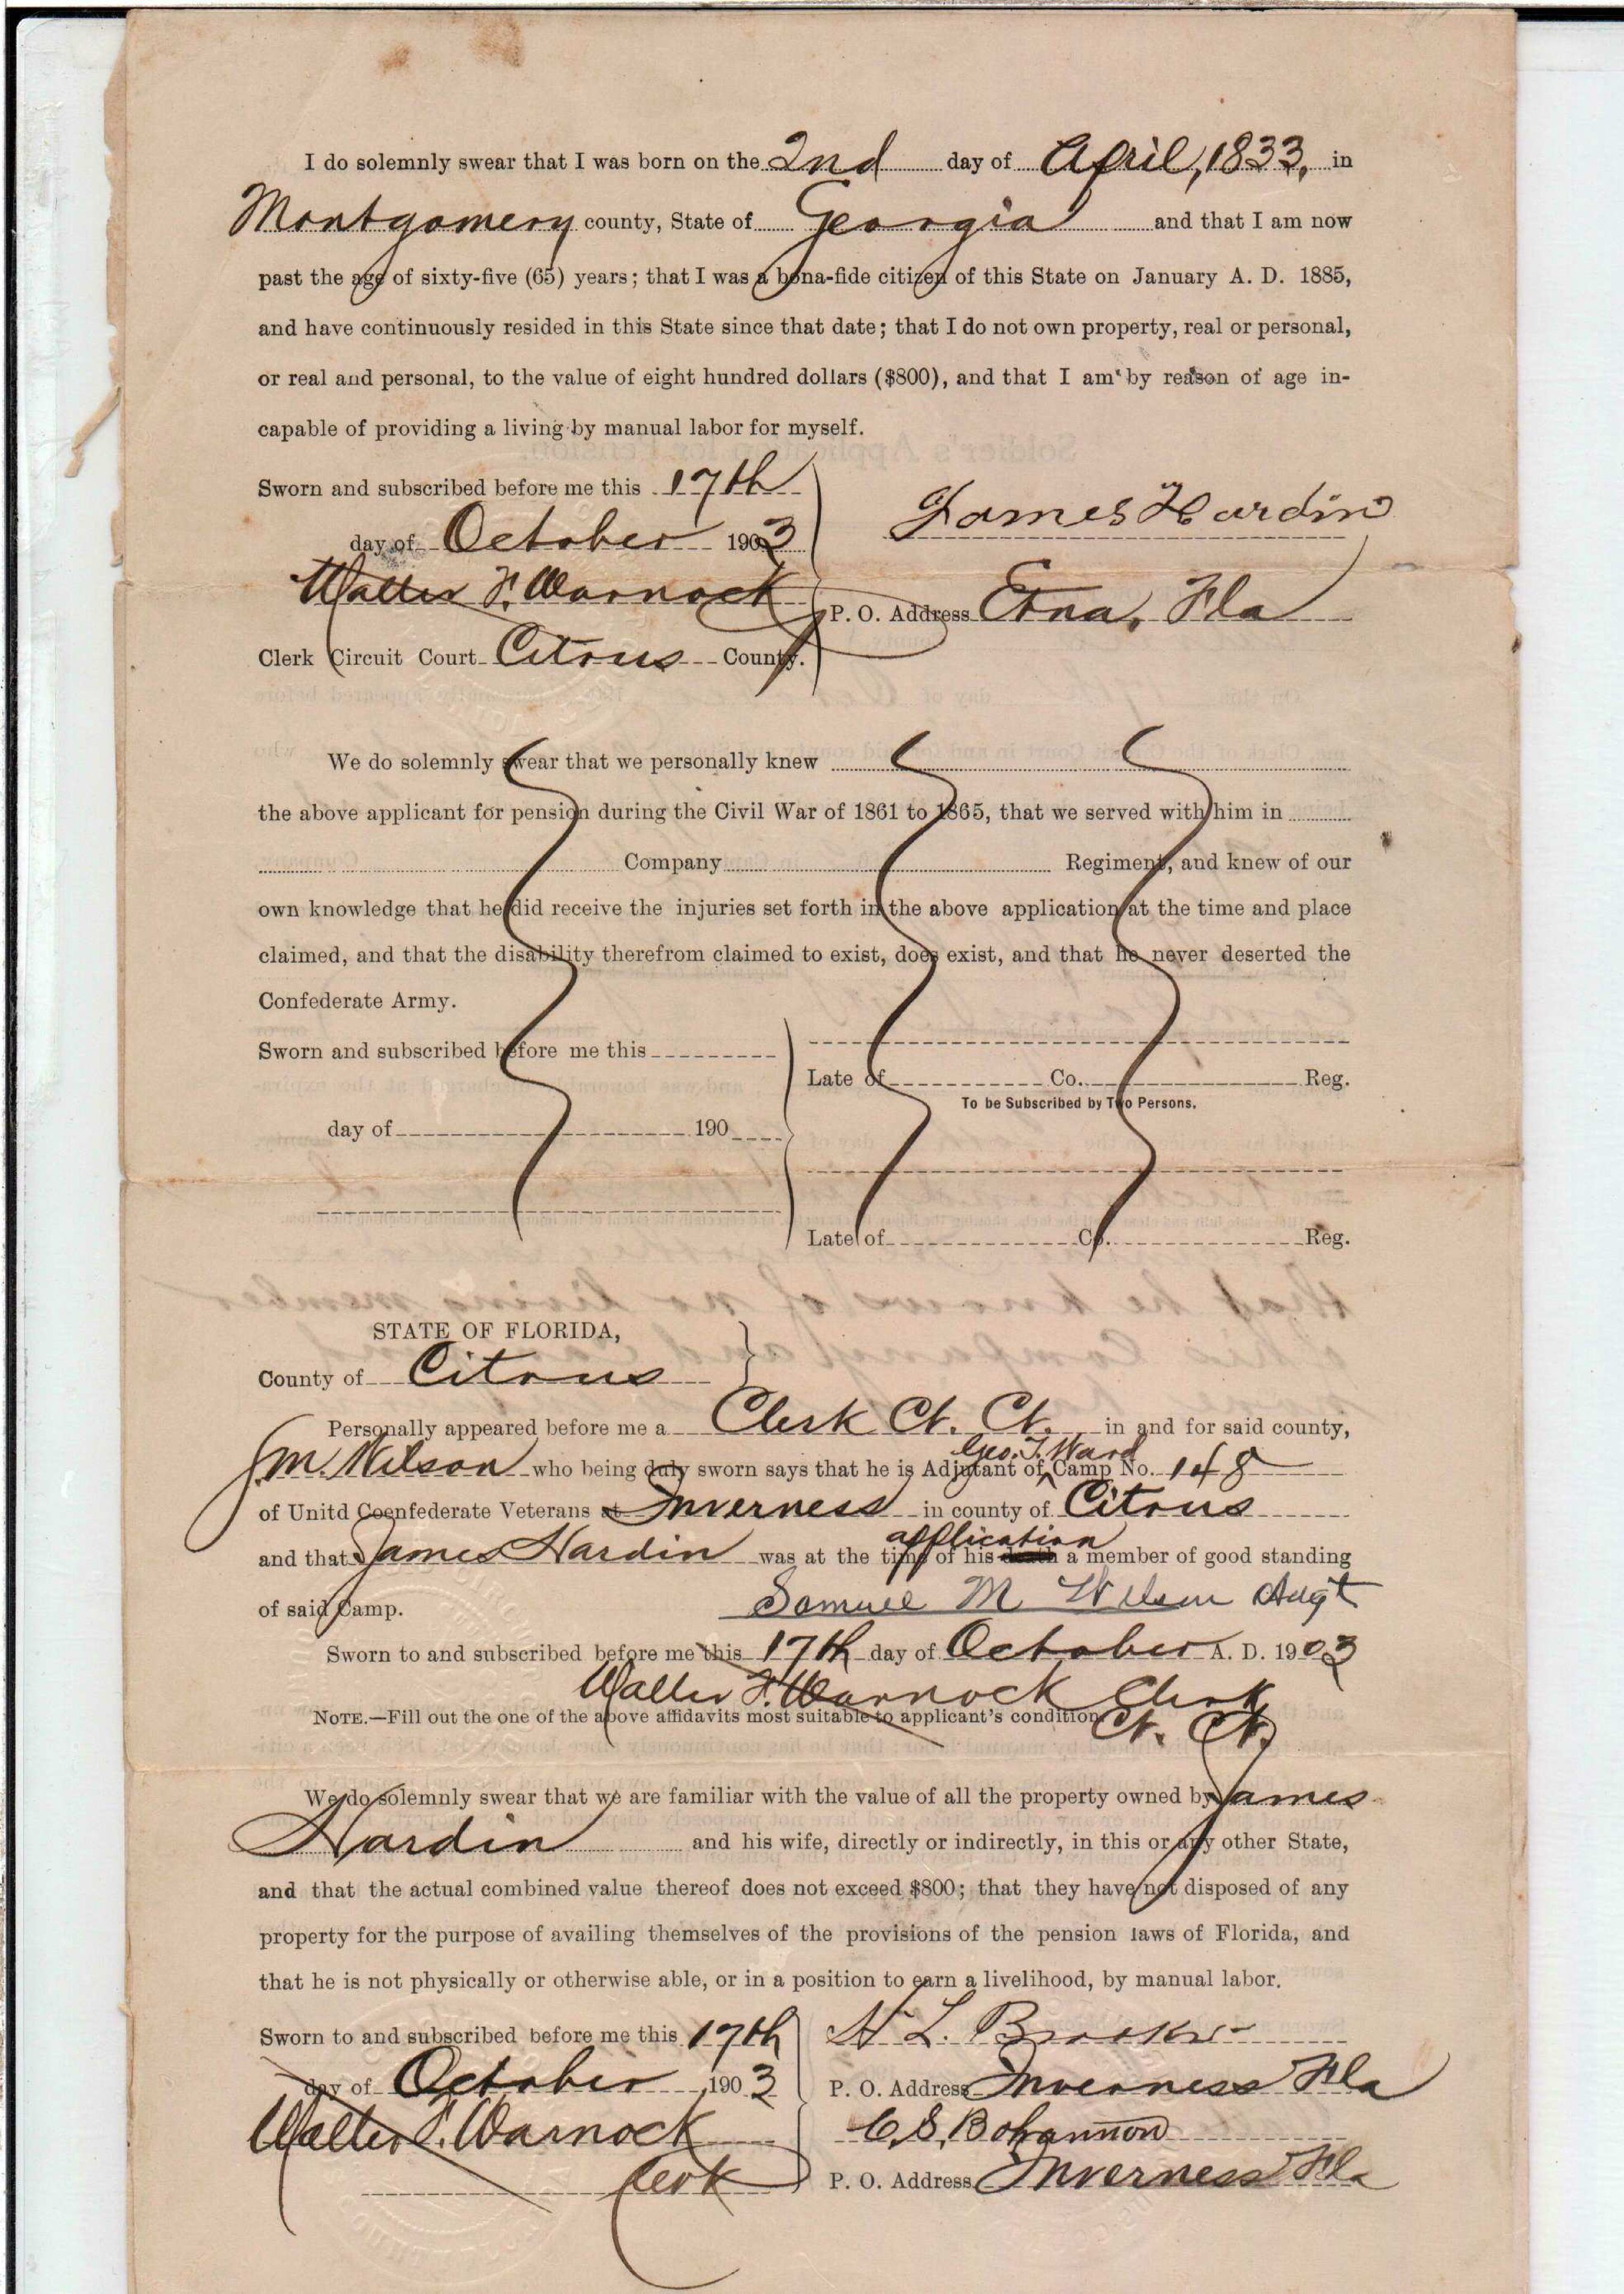 I do solemnly swear that I was born on the 2nd day of April, 1833, in
Montgomery county, State of Georgia and that I am now
past the age of sixty-five (65) years; that I was a bona-fide citizen of this State on January A. D. 1885,
and have continuously resided in this State since that date; that I do not own property, real or personal,
or real and personal, to the value of eight hundred dollars ($800), and that I am by reason of age in-
capable of providing a living by manual labor for myself.
Sworn and subscribed before me this 17th
day of October 1903
James Hardin
Walter F. Warnock
P. O. Address Etna, Fla
Clerk Circuit Court Citrus County.
We do solemnly swear that we personally knew
the above applicant for pension during the Civil War of 1861 to 1865, that we served with him in
Company Regiment, and knew of our
own knowledge that he did receive the injuries set forth in the above application at the time and place
claimed, and that the disability therefrom claimed to exist, does exist, and that he never deserted the
Confederate Army.
Sworn and subscribed before me this
Late of Co. Reg.
To be Subscribed by Two Persons.
day of 190
Late of Co. Reg.
STATE OF FLORIDA,
County of Citrus
Personally appeared before me a Clerk Ct. Ct. in and for said county,
Geo. T. Ward
J.M. Wilson who being duly sworn says that he is Adjutant of Camp No. 148
of Unitd Coenfederate Veterans at Inverness in county of Citrus
application
and that James Hardin was at the time of his death a member of good standing
of said Camp.
Samuel M Wilson Adgt
Sworn to and subscribed before me this 17th day of October A. D. 1903
Walter F. Warnock Clerk
NOTE.—Fill out the one of the above affidavits most suitable to applicant's condition.
Ct. Ct.
We do solemnly swear that we are familiar with the value of all the property owned by James
Hardin and his wife, directly or indirectly, in this or any other State,
and that the actual combined value thereof does not exceed $800; that they have not disposed of any
property for the purpose of availing themselves of the provisions of the pension laws of Florida, and
that he is not physically or otherwise able, or in a position to earn a livelihood, by manual labor.
Sworn to and subscribed before me this 17th
H L.
day of October 1903
P. O. Address Inverness Fla
Walter F. Warnock
C. S. Bohannon
Clerk
P. O. Address Inverness Fla